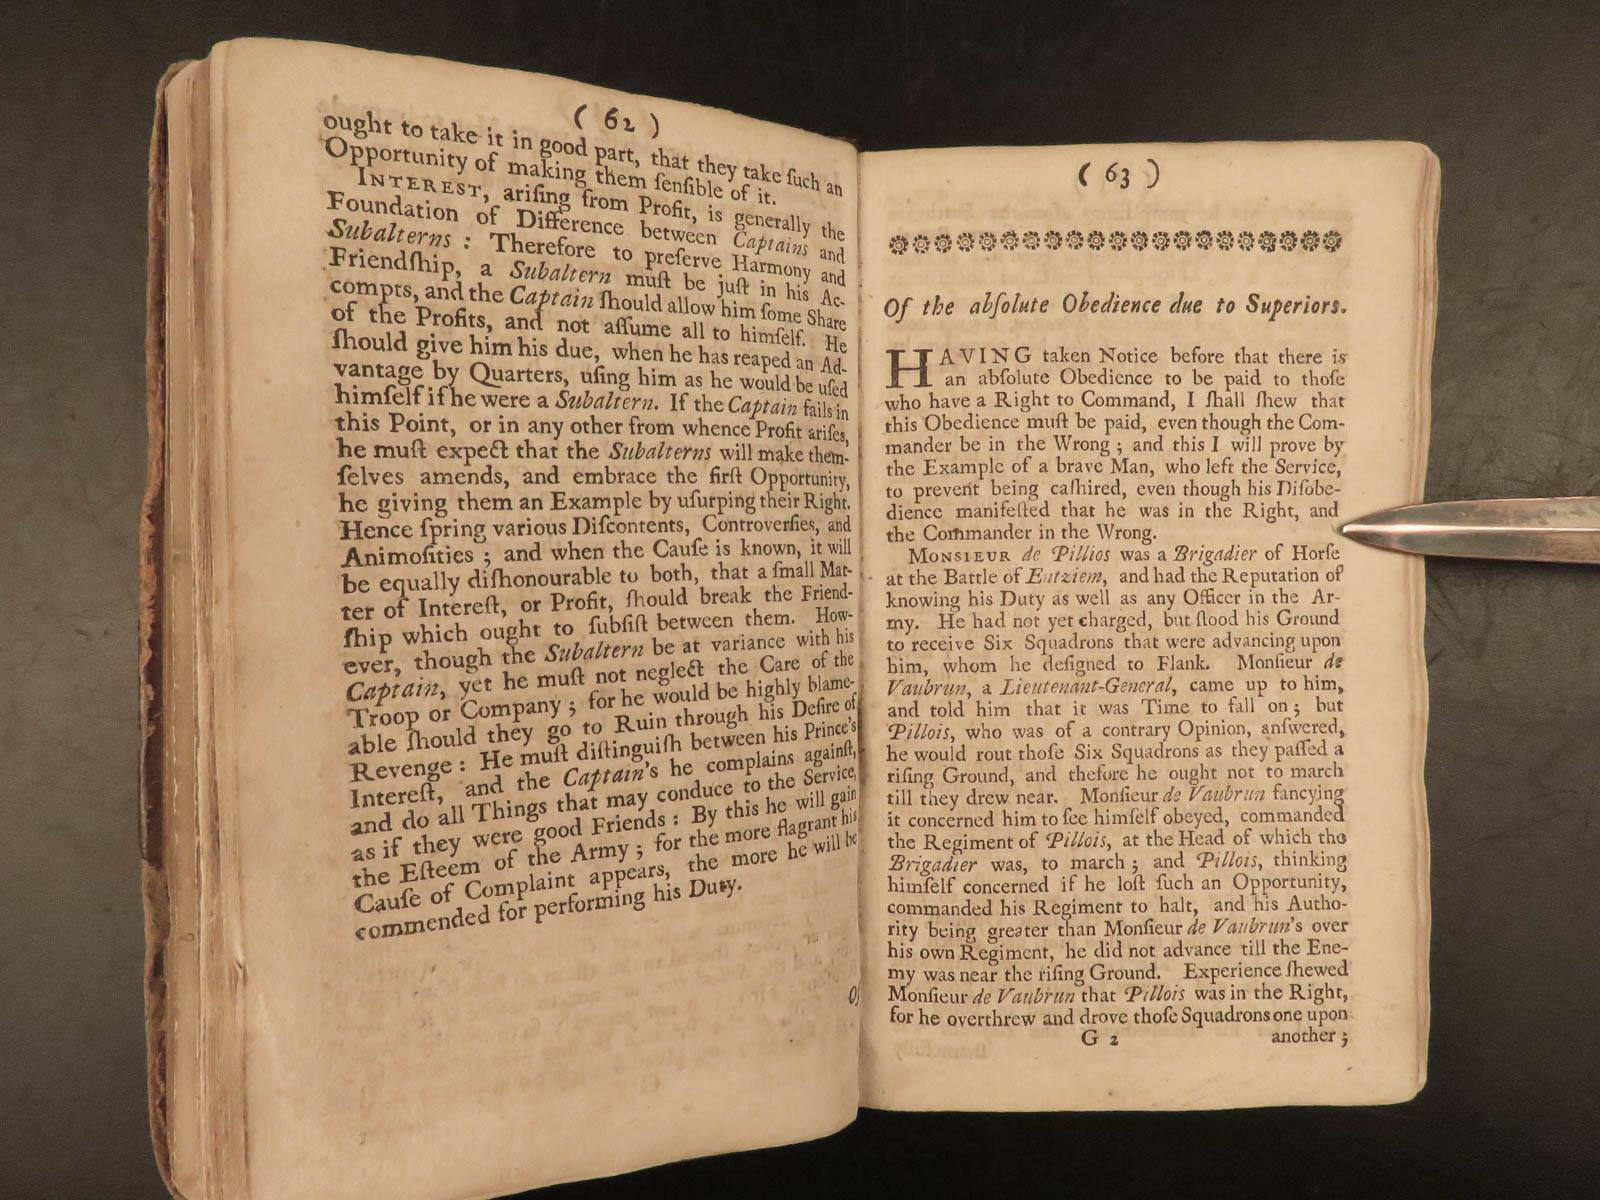 ( 62 )
ought to take it in good part, that they take ſuch an
Opportunity of making them ſenſible of it.
INTEREST, ariſing from Profit, is generally the
Foundation of Difference between Captains and
Subalterns : Therefore to preſerve Harmony and
Friendſhip, a Subaltern muſt be juſt in his Ac-
compts, and the Captain ſhould allow him ſome Share
of the Profits, and not aſſume all to himſelf. He
ſhould give him his due, when he has reaped an Ad-
vantage by Quarters, uſing him as he would be uſed
himſelf if he were a Subaltern. If the Captain fails in
this Point, or in any other from whence Profit ariſes,
he muſt expect that the Subalterns will make them-
ſelves amends, and embrace the firſt Opportunity,
he giving them an Example by uſurping their Right.
Hence ſpring various Diſcontents, Controverſies, and
Animoſities ; and when the Cauſe is known, it will
be equally diſhonourable to both, that a ſmall Mat-
ter of Intereſt, or Profit, ſhould break the Friend-
ſhip which ought to ſubſiſt between them. How-
ever, though the Subaltern be at variance with his
Captain, yet he muſt not neglect the Care of the
Troop or Company ; for he would be highly blame-
able ſhould they go to Ruin through his Deſire of
Revenge : He muſt diſtinguiſh between his Prince's
Intereſt, and the Captain's he complains againſt,
and do all Things that may conduce to the Service,
as if they were good Friends : By this he will gain
the Eſteem of the Army ; for the more flagrant his
Cauſe of Complaint appears, the more he will be
commended for performing his Duty.
Of
( 63 )
Of the abſolute Obedience due to Superiors.
HAVING taken Notice before that there is
an abſolute Obedience to be paid to thoſe
who have a Right to Command, I ſhall ſhew that
this Obedience muſt be paid, even though the Com-
mander be in the Wrong ; and this I will prove by
the Example of a brave Man, who left the Service,
to prevent being caſhired, even though his Diſobe-
dience manifeſted that he was in the Right, and
the Commander in the Wrong.
MONSIEUR de Pillios was a Brigadier of Horſe
at the Battle of Entziem, and had the Reputation of
knowing his Duty as well as any Officer in the Ar-
my. He had not yet charged, but ſtood his Ground
to receive Six Squadrons that were advancing upon
him, whom he deſigned to Flank. Monſieur de
Vaubrun, a Lieutenant-General, came up to him,
and told him that it was Time to fall on ; but
Pillois, who was of a contrary Opinion, anſwered,
he would rout thoſe Six Squadrons as they paſſed a
riſing Ground, and thefore he ought not to march
till they drew near. Monſieur de Vaubrun fancying
it concerned him to ſee himſelf obeyed, commanded
the Regiment of Pillois, at the Head of which the
Brigadier was, to march ; and Pillois, thinking
himſelf concerned if he loſt ſuch an Opportunity,
commanded his Regiment to halt, and his Autho-
rity being greater than Monſieur de Vaubrun's over
his own Regiment, he did not advance till the Ene-
my was near the riſing Ground. Experience ſhewed
Monſieur de Vaubrun that Pillois was in the Right,
for he overthrew and drove thoſe Squadrons one upon
G 2 another ;